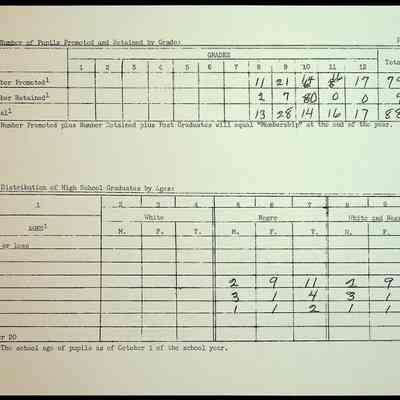 Number of Pupils Promoted and Retained by Grade:
GRADES
1 2 3 4 5 6 7 8 9 10 11 12
Promoted¹ 11 21 17
Retained¹ 2 7 0 0
13 28 14 16 17 88
Number Promoted plus Number Retained plus Post Graduates will equal "Membership" at the end of the year.
Distribution of High School Graduates by Ages:
1 2 3 4 5 6 7 8 9
White Negro White and
AGES¹ M. F. T. M. F. T. M. F.
or less
2 9 11 2 9
3 1 4 3 1
1 1 2 1 1
20
The school age of pupils as of October 1 of the school year.